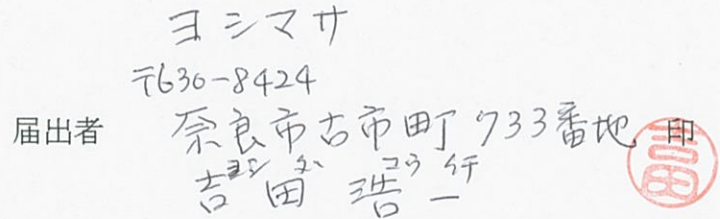 ヨシマサ
〒630-8424
届出者 奈良市古市町733番地 印
ヨシダ コウイチ
吉田 浩一
吉田